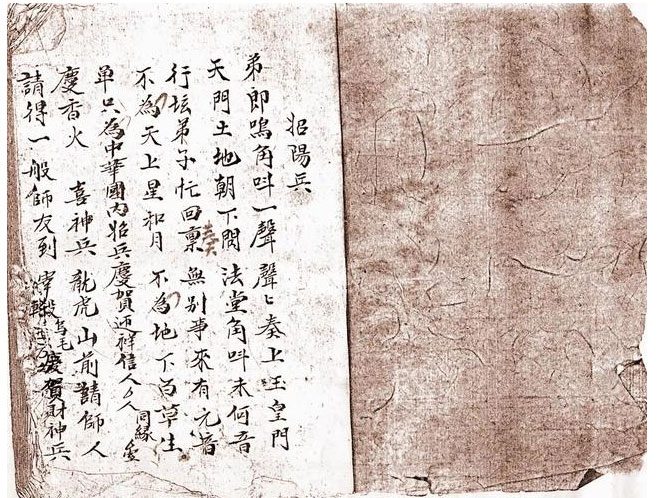 招陽兵
弟郎鳴角叫一聲 聲〻奏上玉皇門
天門土地朝下問 法堂角叫未何音
行坛弟子忙回禀奏 無別事來有元音
不為天上星和月 不為地下百草生
单只為中華國内招兵慶賀迎祥信人
同緣
慶香火 喜神兵 龍虎山前請師人
請得一般師友到
慶賀財神兵